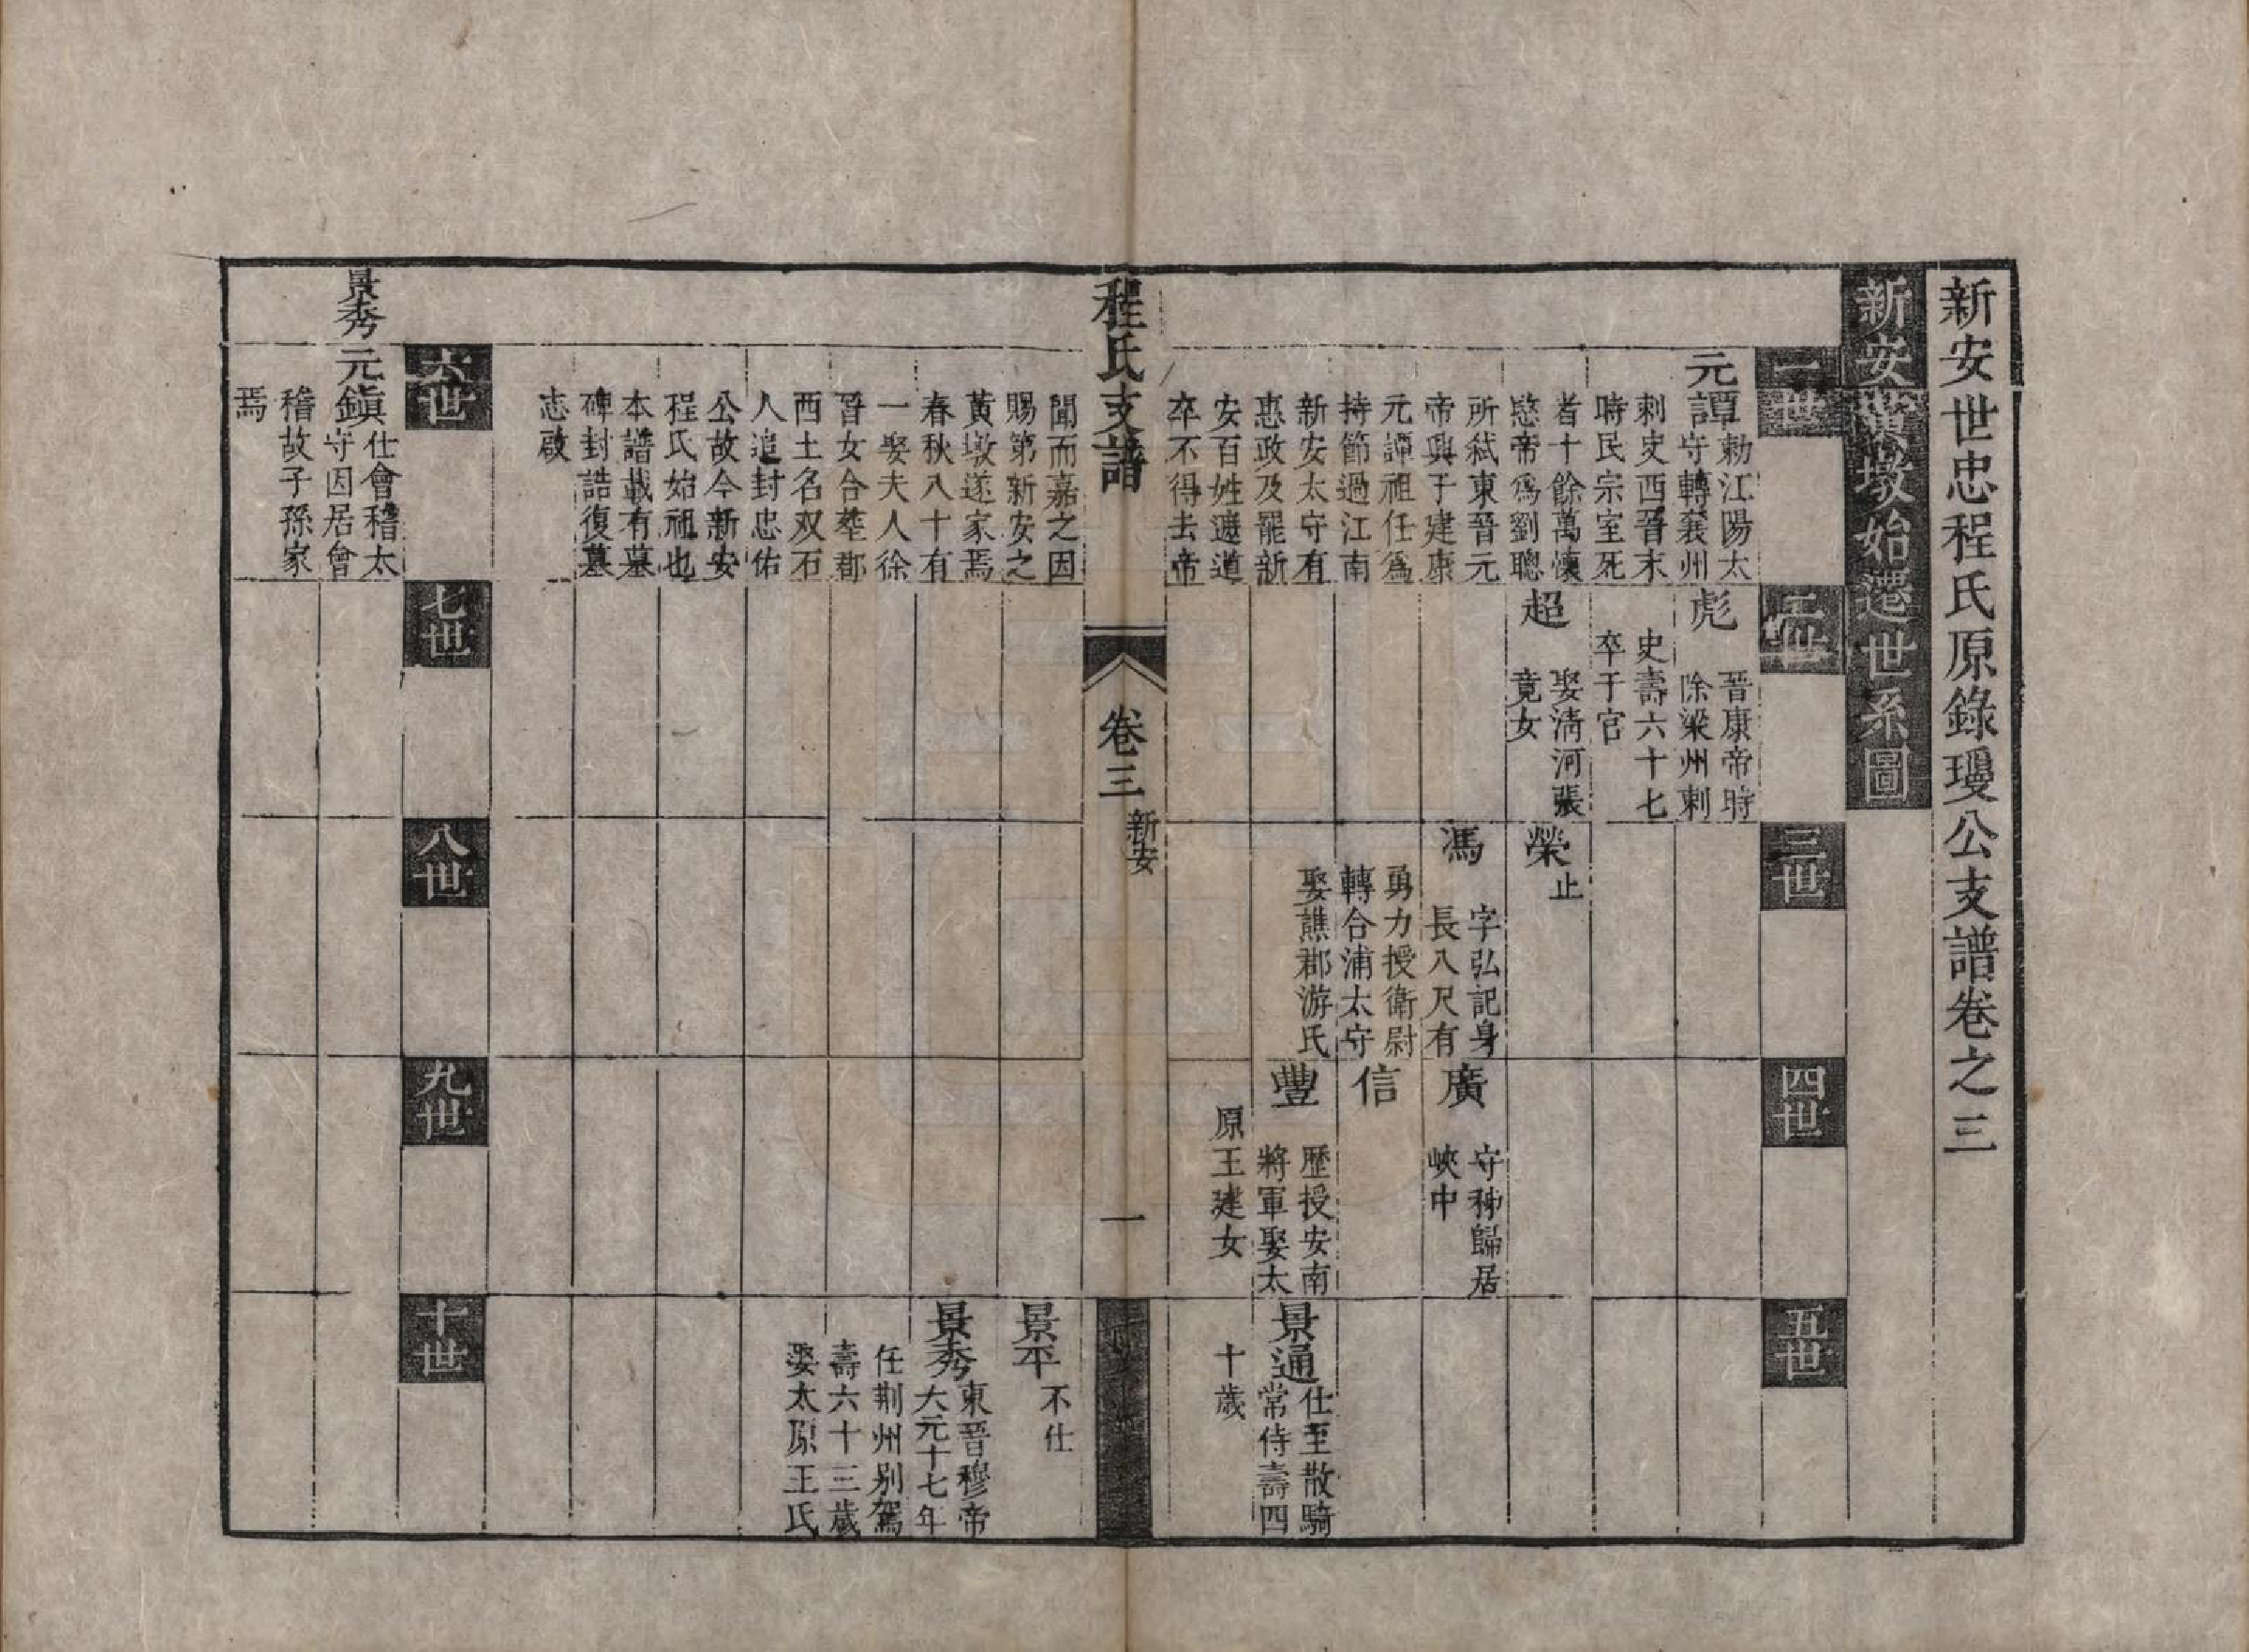 新安世忠程氏原錄瓊公支譜卷之三
新安黃墩始遷世系圖
一世
二世
三世
四世
五世
元譚
勅江陽太
守轉襄州
刺史西晉末
時民宗室死
者十餘萬懷
愍帝爲劉聰
所弒東晉元
帝興于建康
元譚祖任爲
持節過江南
新安太守有
惠政及罷新
安百姓遮道
卒不得去帝
彪
晉康帝時
除梁州刺
史壽六十七
卒于官
超
娶清河張
竟女
榮
止
馮
字弘記身
長八尺有
勇力授衛尉
轉合浦太守
娶譙郡游氏
廣
守秭歸居
峽中
信
豐
歷授安南
將軍娶太
原王建女
景通
仕至散騎
常侍壽四
十歲
程氏支譜
卷三
新安
一
聞而嘉之因
賜第新安之
黃墩遂家焉
春秋八十有
一娶夫人徐
晉女合塟郡
西土名双石
人追封忠佑
公故今新安
程氏始祖也
本譜載有墓
碑封誥復墓
志啟
景平
不仕
景秀
東晉穆帝
大元十七年
任荆州别駕
壽六十三歲
娶太原王氏
六世
七世
八世
九世
十世
景秀
元鎭
仕會稽太
守因居會
稽故子孫家
焉